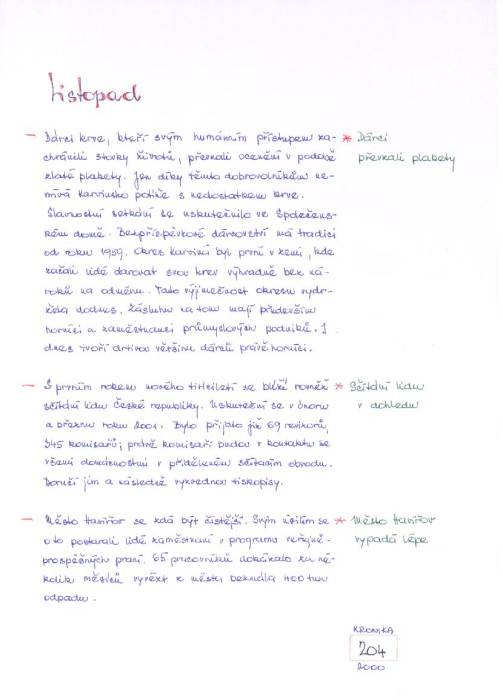 Listopad
— Dárci krve, kteří svým humánním přístupem za-
chránili stovky životů, převzali ocenění v podobě
zlaté plakety. Jen díky těmto dobrovolníkům ne-
mívá Karvinsko potíže s nedostatkem krve.
Slavnostní setkání se uskutečnilo ve Společens-
kém domě. Bezpříspěvkové dárcovství má tradici
od roku 1959. Okres Karviná byl první v zemi, kde
začali lidé darovat svou krev výhradně bez ná-
roků na odměnu. Tato výjimečnost okresu vydr-
žela dodnes. Zásluhu na tom mají především
horníci a zaměstnanci průmyslových podniků. I
dnes tvoří drtivou většinu dárců právě horníci.
* Dárci
převzali plakety
— S prvním rokem nového tisíciletí se blíží rovněž
sčítání lidu České republiky. Uskuteční se v únoru
a březnu roku 2001. Bylo přijato již 69 revizorů,
345 komisařů; právě komisaři budou v kontaktu se
všemi domácnostmi v přiděleném sčítacím obvodu.
Doručí jim a následně vyzvednou tiskopisy.
* Sčítání lidu
v dohledu
— Město Havířov se zdá být čistější. Svým úsilím se
o to postarali lidé zaměstnaní v programu veřejně-
prospěšných prací. 65 pracovníků dokázalo za ně-
kolik měsíců vyvézt z města bezmála 400 tun
odpadu.
* Město Havířov
vypadá lépe
KRONIKA
204
2000